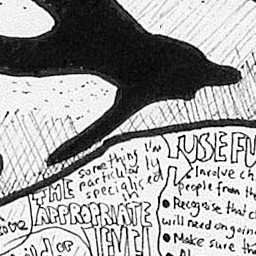 something I'm
particularly
specialised
in
THE
APPROPRIATE
LEVEL
child or
USEFU
Involve ch
people from the
• Recognise that c
will need ongoin
• Make sure tha